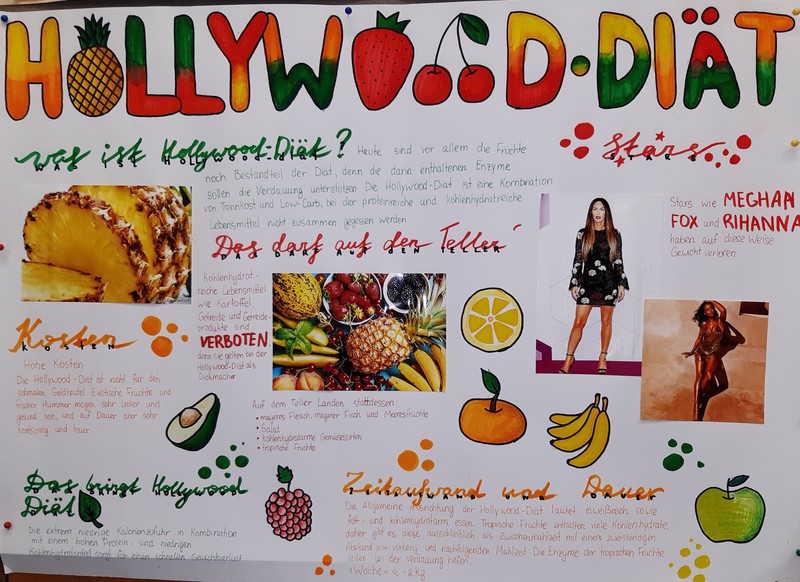 HOLLYWOOD·DIÄT
Was ist Hollywood-Diät?
WAS IST HOLLYWOOD-DIÄT
Heute sind vor allem die Früchte
noch Bestandteil der Diät, denn die darin enthaltenen Enzyme
sollen die Verdauung unterstützen. Die Hollywood-Diät ist eine Kombination
von Trennkost und Low-Carb, bei der proteinreiche und kohlenhydratreiche
Lebensmittel nicht zusammen gegessen werden
Stars
STARS
Stars wie MEGHAN
FOX und RIHANNA
haben auf diese Weise
Gewicht verloren
Das darf auf den Teller
DAS DARF AUF DEN TELLER
Kohlenhydrat-
reiche Lebensmittel
wie Kartoffel,
Getreide und Getreide-
produkte sind
VERBOTEN
denn sie gelten bei der
Hollywood-Diät als
Dickmacher
Auf dem Teller Landen stattdessen:
• mageres Fleisch, magerer Fisch und Meeresfrüchte
• Salat
• kohlenhydratarme Gemüsesorten
• tropische Früchte
Kosten
KOSTEN
Hohe Kosten
Die Hollywood-Diät ist nicht für den
schmalen Geldbeutel. Exotische Früchte und
frischer Hummer mögen sehr lecker und
gesund sein, sind auf Dauer aber sehr
und teuer
Das bringt Hollywood
Diät
Die extrem niedrige Kalorienzufuhr in Kombination
mit einem hohen Protein- und niedrigen
Kohlenhydratanteil sorgt für einen schnellen Gewichtverlust
Zeitaufwand und Dauer
ZEITAUFWAND UND DAUER
Die Allgemeine Ausrichtung der Hollywood-Diät lautet: eiweißreich sowie
fett- und kohlenhydratarm essen. Tropische Früchte enthalten viele Kohlenhydrate,
daher gibt es diese ausschließlich als Zwischenmahlzeit mit einem zweistündigen
Abstand zur vorherig und nachfolgenden Mahlzeit. Die Enzyme der tropischen Früchte
sollen bei der Verdauung helfen.
1 Woche = ≈ -2 Kg